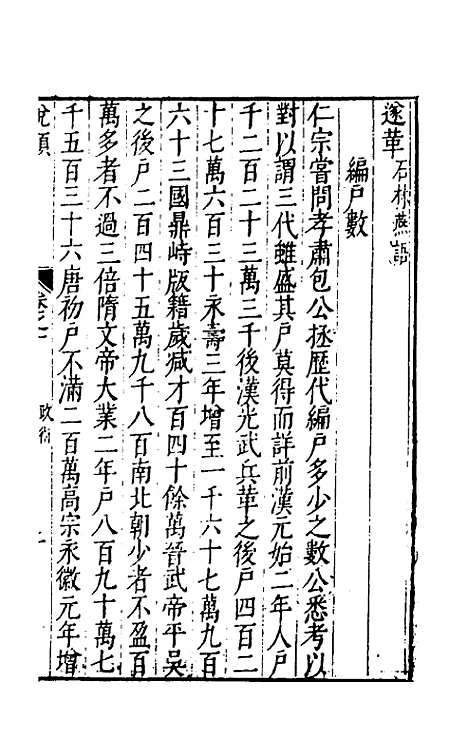 遂華石林燕語
編戶數
仁宗嘗問孝肅包公拯歷代編戶多少之數公悉考以
對以謂三代雖盛其戶莫得而詳前漢元始二年人戶
千二百二十三萬三千後漢光武兵革之後戶四百二
十七萬六百三十永壽三年增至一千六十七萬九百
六十三國鼎峙版籍歲减才百四十餘萬晉武帝平吳
之後戶二百四十五萬九千八百南北朝少者不盈百
萬多者不過三倍隋文帝大業二年戶八百九十萬七
千五百三十六唐初戶不滿二百萬高宗永徽元年增
說頤
卷之一
政術